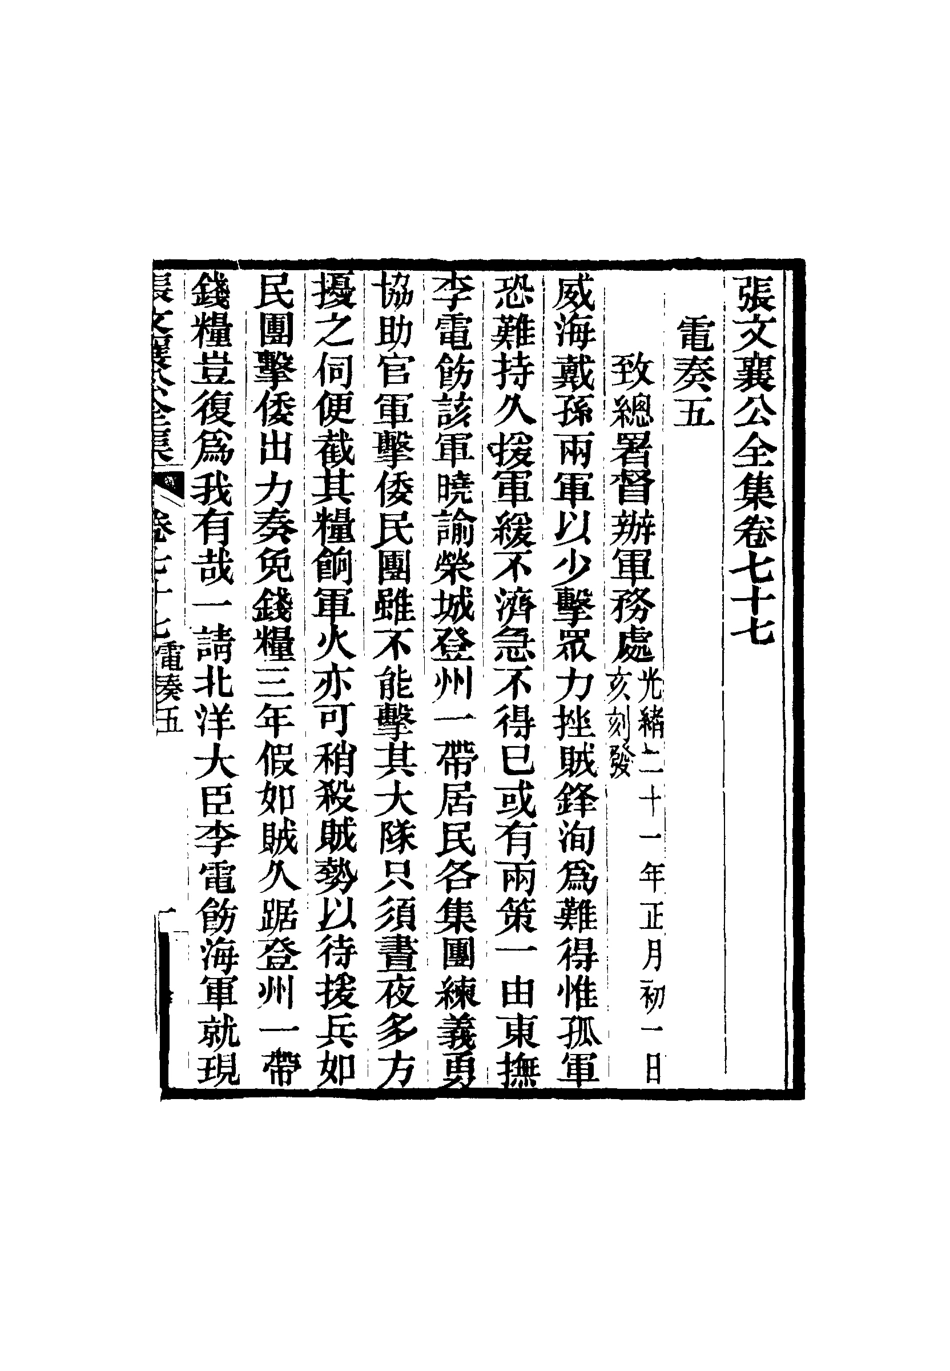 張文襄公全集卷七十七
電奏五
致總署督辦軍務處光緒二十一年正月初一日
亥刻發
威海戴孫兩軍以少擊眾力挫賊鋒洵爲難得惟孤軍
恐難持久援軍緩不濟急不得已或有兩策一由東撫
李電飭該軍曉諭榮城登州一帶居民各集團練義勇
協助官軍擊倭民團雖不能擊其大隊只須晝夜多方
擾之伺便截其糧餉軍火亦可稍殺賊勢以待援兵如
民團擊倭出力奏免錢糧三年假如賊久踞登州一帶
錢糧豈復爲我有哉一請北洋大臣李電飭海軍就現
張文襄公全集 卷七十七電奏五 一